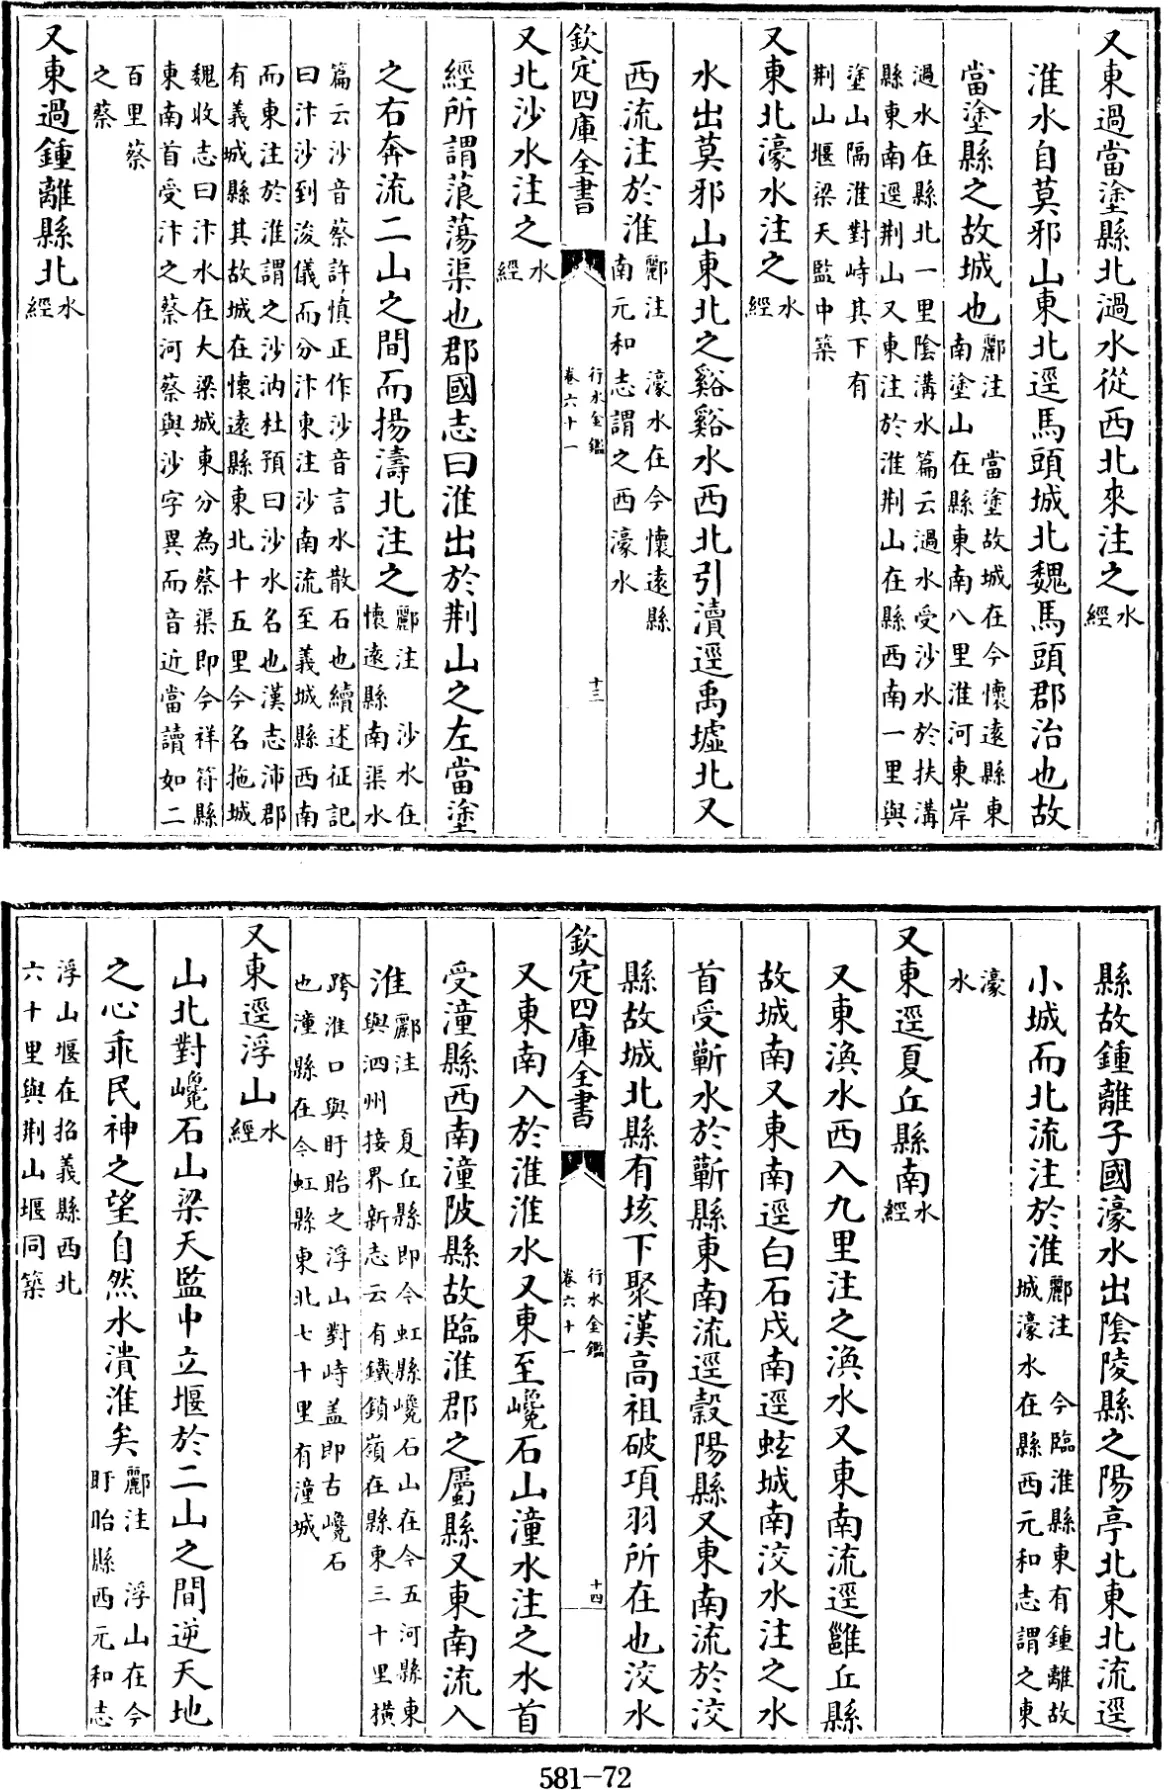 又東過當塗縣北濄水從西北來注之水經
淮水自莫邪山東北逕馬頭城北魏馬頭郡治也故
當塗縣之故城也酈注 當塗故城在今懷遠縣東南塗山在縣東南八里淮河東岸
濄水在縣北一里陰溝水篇云濄水受沙水於扶溝縣東南逕荆山又東注於淮荆山在縣西南一里與
塗山隔淮對峙其下有荆山堰梁天監中築
又東北濠水注之水經
水出莫邪山東北之谿谿水西北引瀆逕禹墟北又
西流注於淮酈注 濠水在今懷遠縣南元和志謂之西濠水
欽定四庫全書 行水金鑑 卷六十一 十三
又北沙水注之水經
經所謂蒗蕩渠也郡國志曰淮出於荆山之左當塗
之右奔流二山之間而揚濤北注之酈注 沙水在懷遠縣南渠水
篇云沙音蔡許慎正作沙音言水散石也續述征記曰汴沙到浚儀而分汴東注沙南流至義城縣西南
而東注於淮謂之沙汭杜預曰沙水名也漢志沛郡有義城縣其故城在懷遠縣東北十五里今名拖城
魏收志曰汴水在大梁城東分為蔡渠即今祥符縣東南首受汴之蔡河蔡與沙字異而音近當讀如二
百里蔡之蔡
又東過鍾離縣北水經
縣故鍾離子國濠水出陰陵縣之陽亭北東北流逕
小城而北流注於淮酈注 今臨淮縣東有鍾離故城濠水在縣西元和志謂之東
濠水
又東逕夏丘縣南水經
又東渙水西入九里注之渙水又東南流逕雝丘縣
故城南又東南逕白石戍南逕虹城南洨水注之水
首受蘄水於蘄縣東南流逕穀陽縣又東南流於洨
縣故城北縣有垓下聚漢高祖破項羽所在也洨水
欽定四庫全書 行水金鑑 卷六十一 十四
又東南入於淮淮水又東至巉石山潼水注之水首
受潼縣西南潼陂縣故臨淮郡之屬縣又東南流入
淮酈注 夏丘縣即今虹縣巉石山在今五河縣東與泗州接界新志云有鐵鎖嶺在縣東三十里橫
跨淮口與盱眙之浮山對峙蓋即古巉石也潼縣在今虹縣東北七十里有潼城
又東逕浮山水經
山北對巉石山梁天監中立堰於二山之間逆天地
之心乖民神之望自然水潰淮矣酈注 浮山在今盱眙縣西元和志
浮山堰在招義縣西北六十里與荆山堰同築
581—72